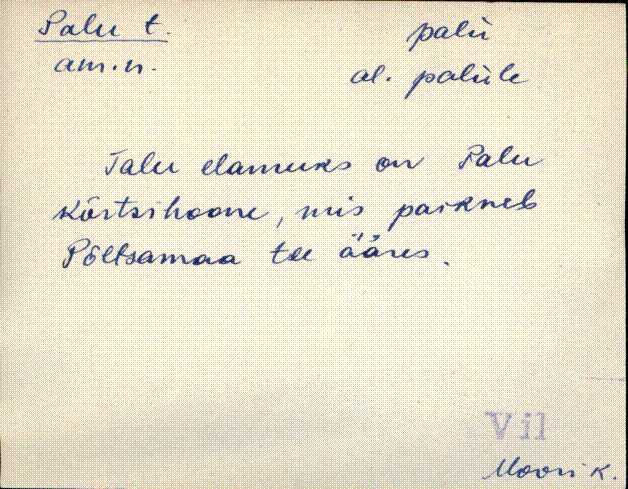 Palu t.
am.n.
palu̇
al. palu̇le
Talu elamuks on Palu
kõrtsihoone, mis paikneb
Põltsamaa tee ääres.
Vil
Moori k.